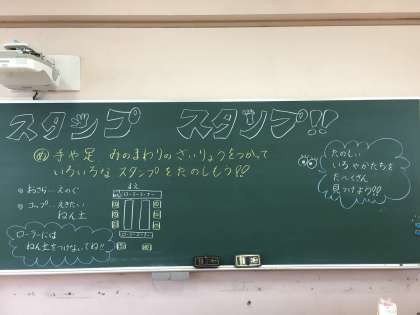 スタンプ スタンプ!!
め 手や足 みのまわりのざいりょうをつかって
いろいろな スタンプ をたのしもう!!
おさら…えのぐ
コップ…えきたい
ねん土
まえ
ローラーコーナー
ローラーコーナー
ローラーには
ねん土をつけないでね!!
たのしい
いろやかたちを
たくさん
見つけよう!!